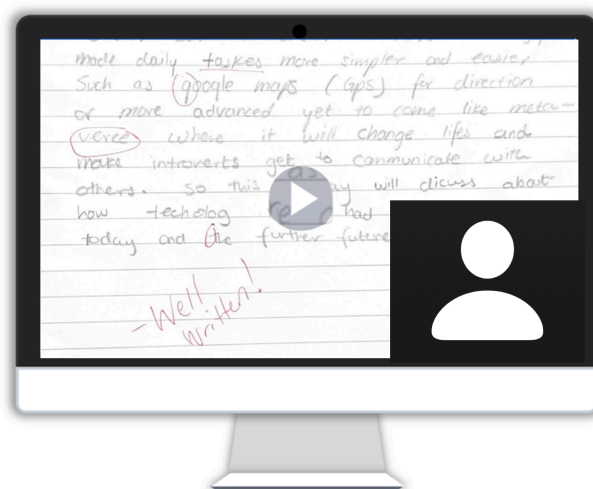 made daily taskes more simpler and easier
Such as google maps (Gps) for direction
or more advanced yet to come like meta-
veree where it will change lifes and
make introverts get to communicate with
others. So this will dicuss about
how techolog had
today and the further future
-Well
written!